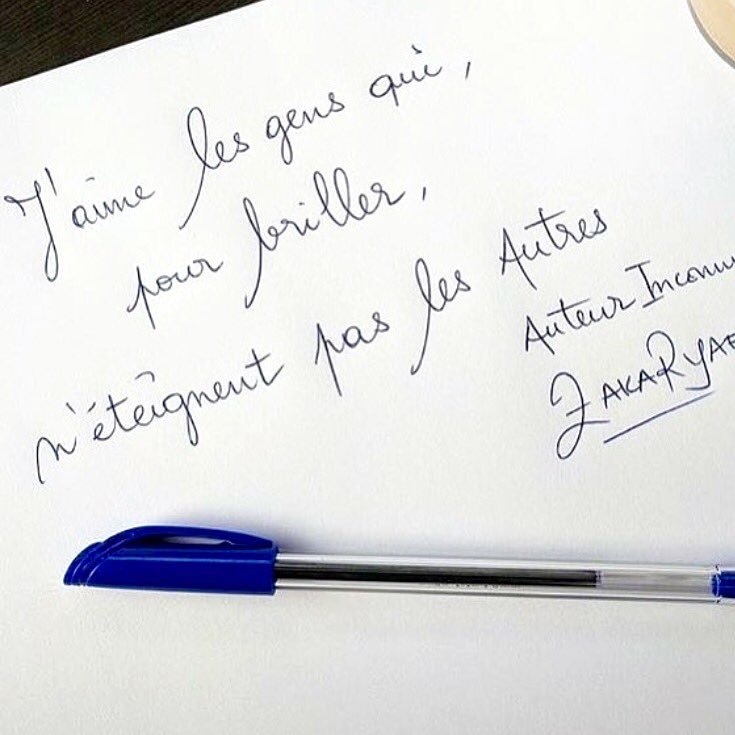 J'aime les gens qui,
pour briller,
n'éteignent pas les Autres
Auteur Inconnu
ZAKARYAE